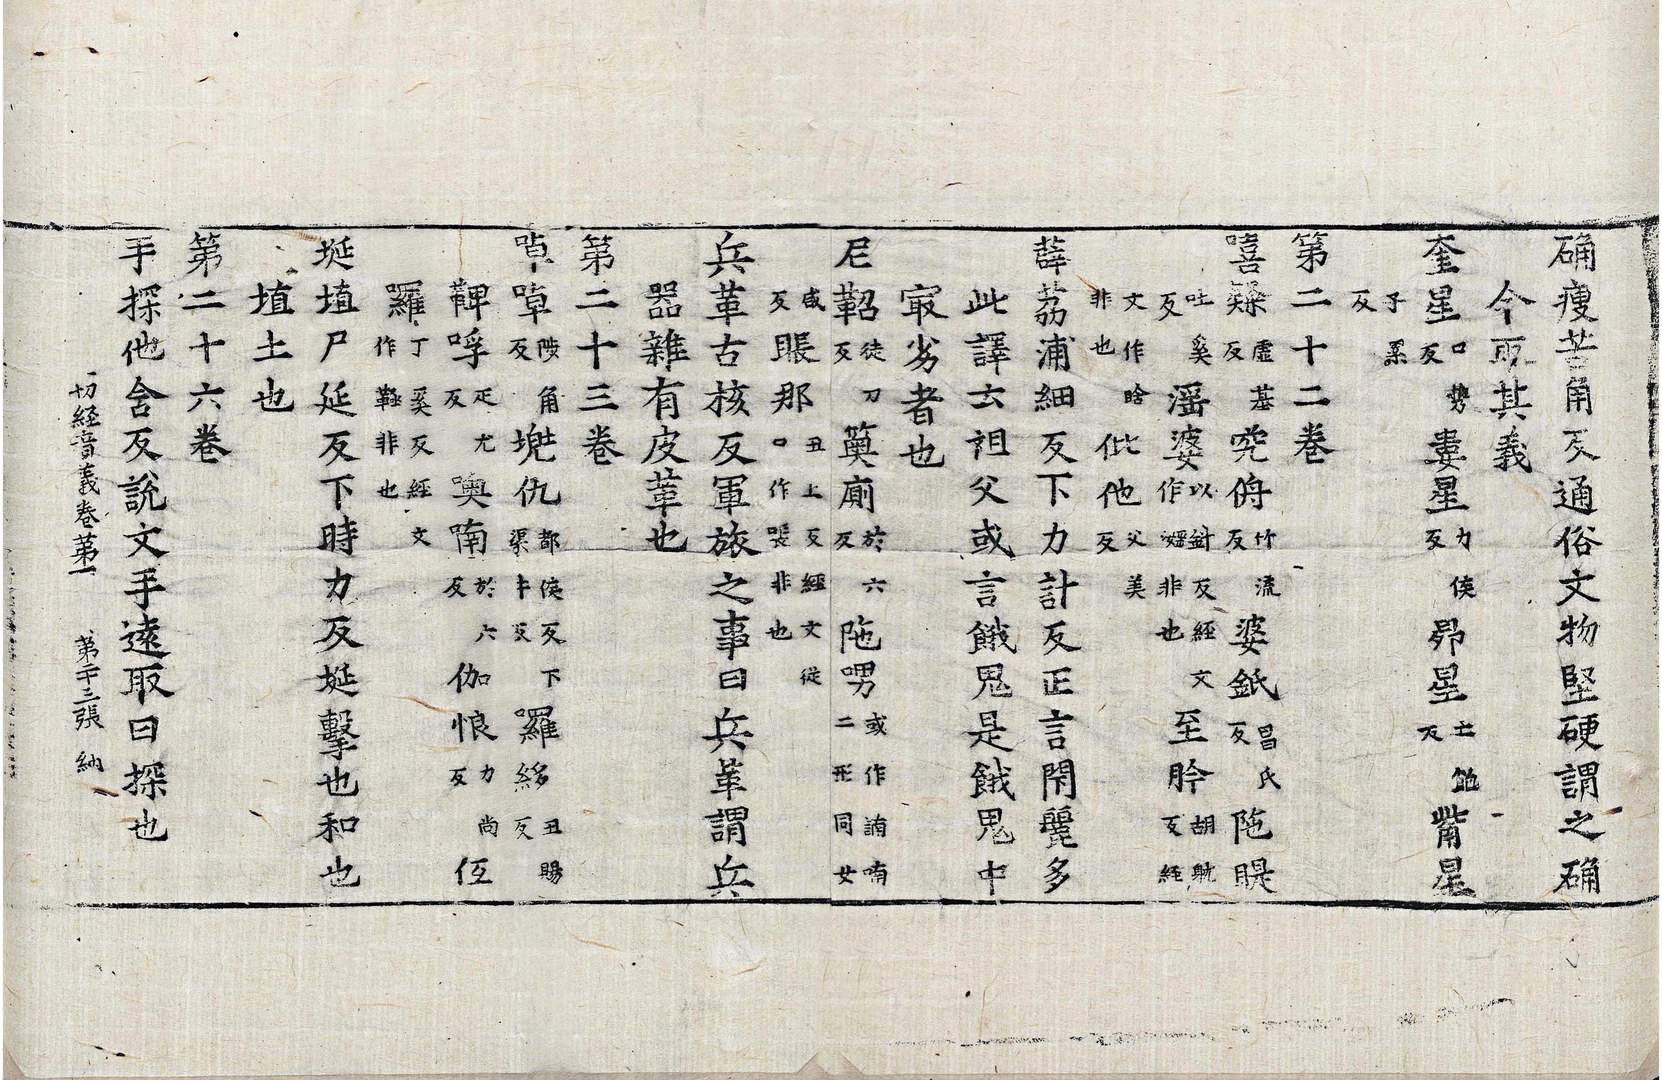 确瘦苦角反通俗文物堅硬謂之确
今取其義
奎星口勢反婁星力侯反昴星亡飽反觜星
子累反
第二十二卷
嘻䊝虛基反究𠈃竹流反婆鈘昌氏反陁䁠
吐奚反滛婆以針反經文作婬非也至肣胡躭反經
文作晗非也仳他父美反
薜荔浦細反下力計反正言閇䴡多
此譯云祖父或言餓鬼是餓鬼中
㝡劣者也
尼鞀徒刀反䉛廁於六反陁㗙或作諵喃二形同女
咸反賬那丑上反經文從口作㗂非也
兵革古核反軍旅之事曰兵革謂兵
器雜有皮革也
第二十三卷
啅㖼陟角反兠仇都侯反下渠牛反羅𦀖丑賜反
鞞呼疋尤反噢喃於六反伽悢力尚反低
羅丁奚反經文作鞮非也
埏埴尸延反下時力反埏擊也和也
埴土也
第二十六卷
手探他含反說文手遠取曰探也
一切經音義卷第一 第二十三張 納